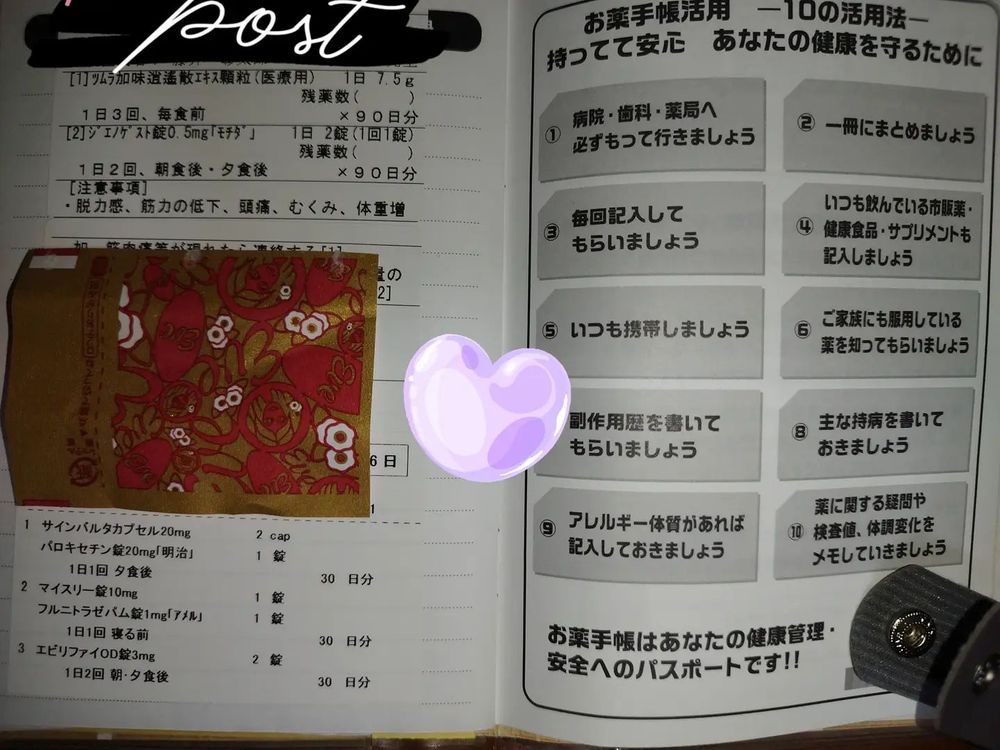 post
[1]ﾂﾑﾗ加味逍遙散ｴｷｽ顆粒(医療用)　1日 7.5g
残薬数(　　)
1日3回、毎食前　×90日分
[2]ｼﾞｴﾉｹﾞｽﾄ錠0.5mg｢ﾓﾁﾀﾞ｣　1日 2錠(1回1錠)
残薬数(　　)
1日2回、朝食後・夕食後　×90日分
[注意事項]
・脱力感、筋力の低下、頭痛、むくみ、体重増
加、筋肉痛等が現れたら連絡する[1]
量の
2]
6日
1
1 サインバルタカプセル20mg　2 cap
パロキセチン錠20mg｢明治｣　1 錠
1日1回 夕食後　30 日分
2 マイスリー錠10mg　1 錠
フルニトラゼパム錠1mg｢ｱﾒﾙ｣　1 錠
1日1回 寝る前　30 日分
3 エビリファイOD錠3mg　2 錠
1日2回 朝･夕食後　30 日分
お薬手帳活用　―10の活用法―
持ってて安心　あなたの健康を守るために
① 病院・歯科・薬局へ
必ずもって行きましょう
② 一冊にまとめましょう
③ 毎回記入して
もらいましょう
④ いつも飲んでいる市販薬・
健康食品・サプリメントも
記入しましょう
⑤ いつも携帯しましょう
⑥ ご家族にも服用している
薬を知ってもらいましょう
副作用歴を書いて
もらいましょう
⑧ 主な持病を書いて
おきましょう
⑨ アレルギー体質があれば
記入しておきましょう
⑩ 薬に関する疑問や
検査値、体調変化を
メモしていきましょう
お薬手帳はあなたの健康管理・
安全へのパスポートです!!